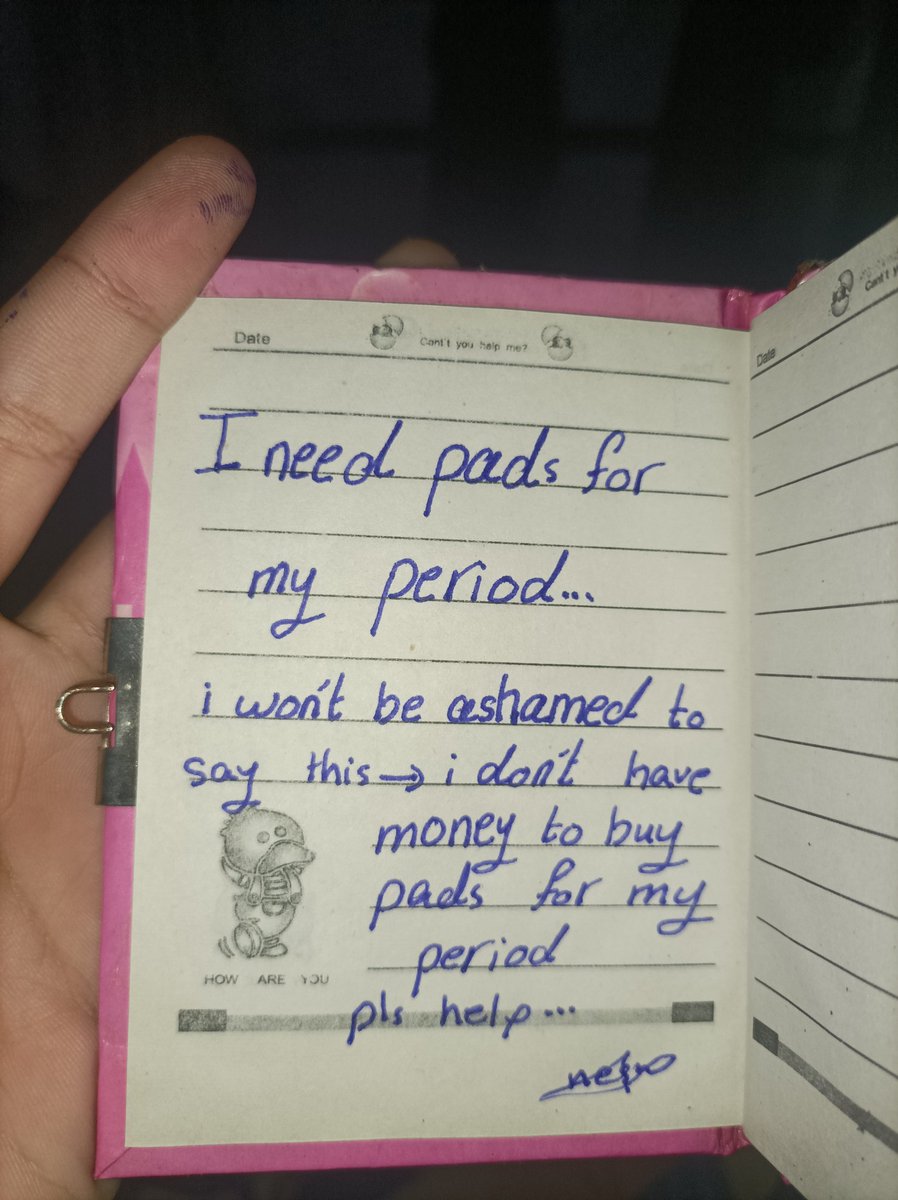 Date Cant't you help me?
I need pads for
my period...
i won't be ashamed to
say this → i don't have
money to buy
pads for my
period
HOW ARE YOU
pls help...
Date